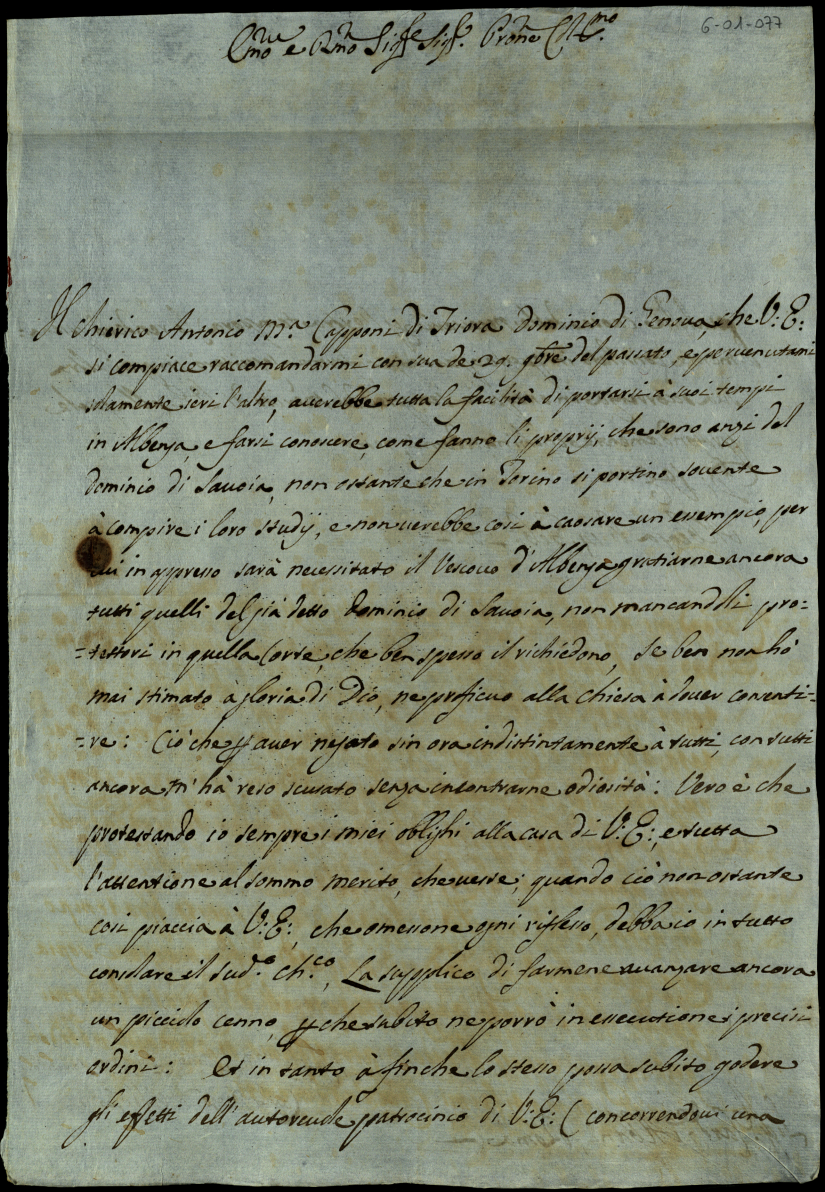 6-01-077
Em̃o e Rm̃o Sig.re Sig.r Pron̄e Col.mo
Il chierico Antonio M.a Capponi di Triora dominio di Genova, che V: E:
si compiace raccomandarmi con sua de 29. 9bre del passato, e pervenutami
solamente ieri l'altro, averebbe tutta la facilità di portarsi à suoi tempi
in Albenga, e farsi conoscere, come fanno li proprij, che sono anzi del
dominio di Savoia, non ostante che in Torino si portino sovente
à compire i loro studij, e non verebbe così à caosare un essempio per
cui in appresso sarà necessitato il Vescovo d'Albenga gratiarne ancora
tutti quelli del già detto Dominio di Savoia, non mancandoli pro=
=tettori in quella Corte, che ben spesso il richiedono, se ben non hò
mai stimato à gloria di Dio, ne proficuo alla Chiesa à dover consenti=
=re: Ciò che p aver negato sin ora indistintamente à tutti, con tutti
ancora m'hà reso scusato senza incontrarne odiosità: Vero è che
protestando io sempre i miei oblighi alla casa di V: E:, e tutta
l'attentione al sommo merito, che veste; quando ciò non ostante
così piaccia à V: E:, che omessone ogni riflesso, debba io in tutto
consolare il sud.o ch.co, La supplico di farmene avanzare ancora
un picciolo cenno, p che subito ne porrò in essecutione i precisi
ordini: Et in tanto à finche lo stesso possa subito godere
gli effetti dell'autorevole patrocinio di V: E: (concorrendovi una